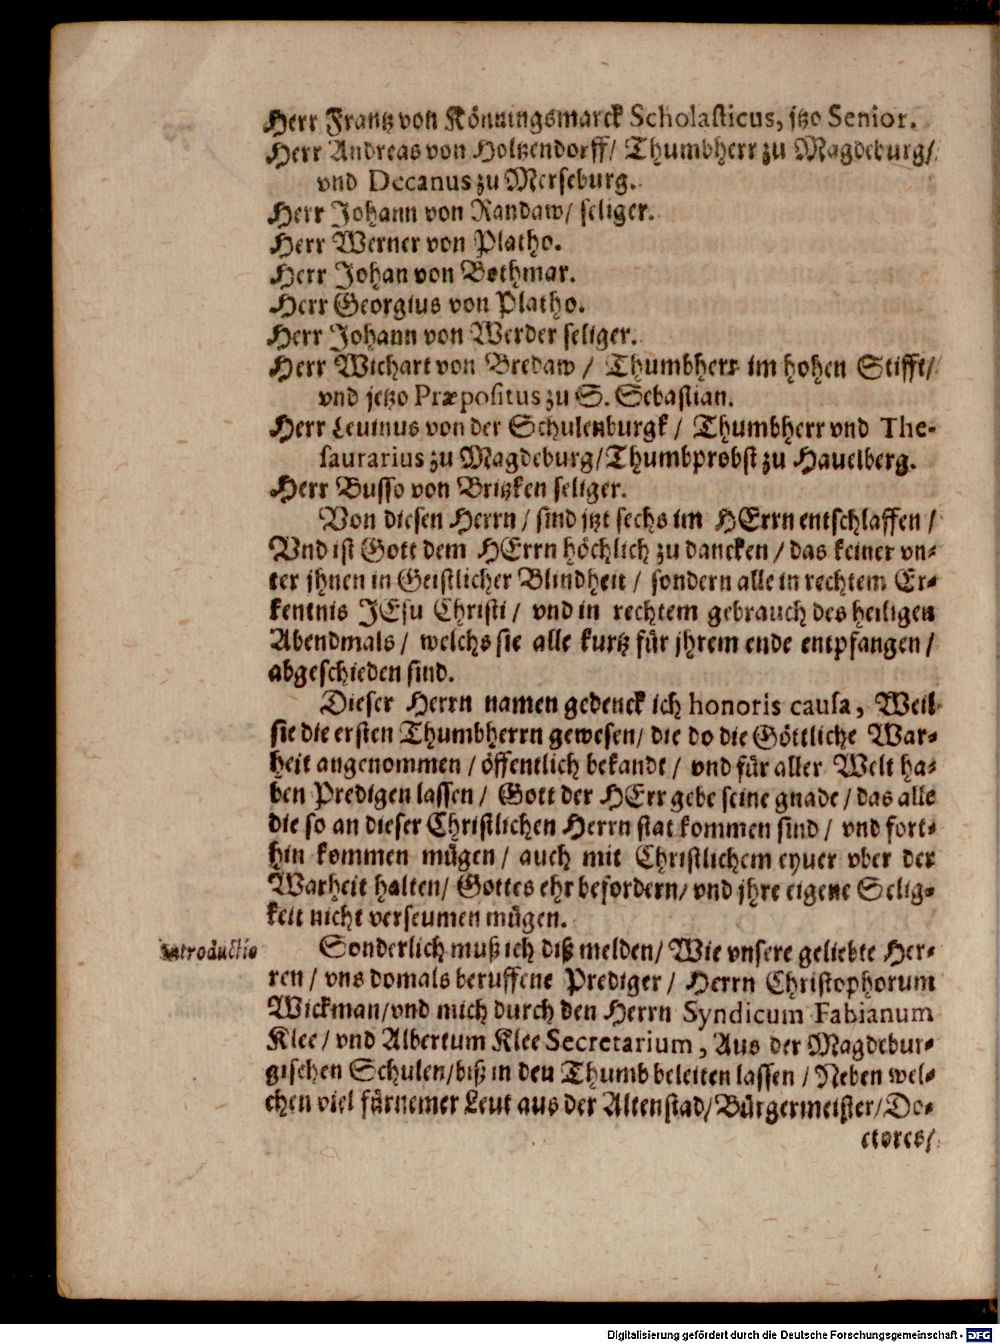 Herr Frantz von Könningsmarck Scholasticus, jtzo Senior.
Herr Andreas von Holtzendorff/ Thumbherr zu Magdeburg/
vnd Decanus zu Merseburg.
Herr Johann von Randaw/ seliger.
Herr Werner von Platho.
Herr Johan von Bothmar.
Herr Georgius von Platho.
Herr Johann von Werder seliger.
Herr Wichart von Bredaw / Thumbherr im hohen Stifft/
vnd jetzo Præpositus zu S. Sebastian.
Herr Leuinus von der Schulenburgk / Thumbherr vnd The-
saurarius zu Magdeburg/Thumbprobst zu Hauelberg.
Herr Busso von Britzken seliger.
Von diesen Herrn / sind jtzt sechs im HErrn entschlaffen /
Vnd ist Gott dem HErrn höchlich zu dancken / das keiner vn-
ter jhnen in Geistlicher Blindheit / sondern alle in rechtem Er-
kentnis JEsu Christi / vnd in rechtem gebrauch des heiligen
Abendmals / welchs sie alle kurtz für jhrem ende entpfangen /
abgeschieden sind.
Dieser Herrn namen gedenck ich honoris causa, Weil
sie die ersten Thumbherrn gewesen/ die do die Göttliche War-
heit angenommen / öffentlich bekandt / vnd für aller Welt ha-
ben Predigen lassen / Gott der HErr gebe seine gnade / das alle
die so an dieser Christlichen Herrn stat kommen sind / vnd fort-
hin kommen mügen / auch mit Christlichem eyuer vber der
Warheit halten/ Gottes ehr befordern/ vnd jhre eigene Selig-
keit nicht verseumen mügen.
Introductio
Sonderlich muß ich diß melden/ Wie vnsere geliebte Her-
ren / vns domals beruffene Prediger / Herrn Christophorum
Wickman/vnd mich durch den Herrn Syndicum Fabianum
Klee / vnd Albertum Klee Secretarium, Aus der Magdebur-
gischen Schulen/biß in den Thumb beleiten lassen / Neben wel-
chen viel fürnemer Leut aus der Altenstad/Bürgermeister/Do-
ctores/
Digitalisierung gefördert durch die Deutsche Forschungsgemeinschaft - DFG